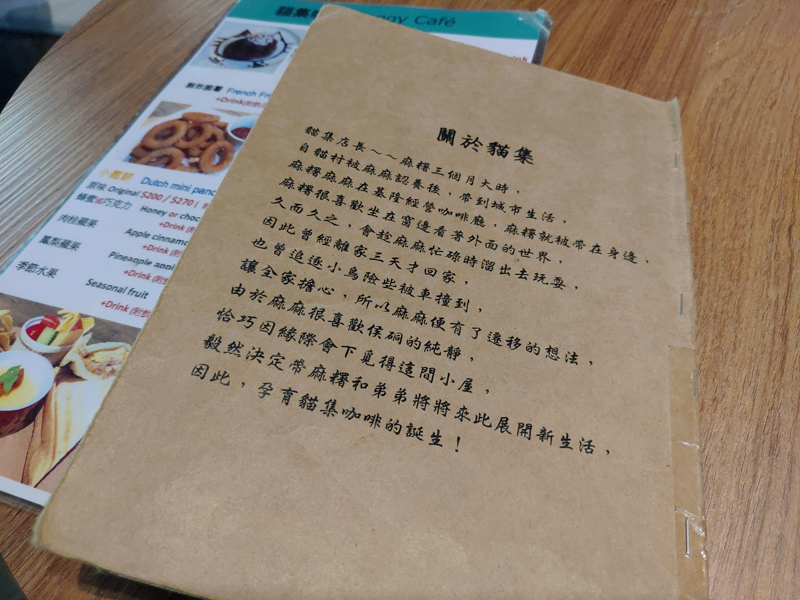 關於貓集
貓集店長～～麻糬三個月大時，
自貓村被麻麻認養後，帶到城市生活，
麻糬麻麻在基隆經營咖啡廳，麻糬就被帶在身邊，
麻糬很喜歡坐在窗邊看著外面的世界，
久而久之，會趁麻麻忙碌時溜出去玩耍，
因此曾經離家三天才回家，
也曾追逐小鳥險些被車撞到，
讓全家擔心，所以麻麻便有了遷移的想法，
由於麻麻很喜歡侯硐的純靜，
恰巧因緣際會下覓得這間小屋，
毅然決定帶麻糬和弟弟將將來此展開新生活，
因此，孕育貓集咖啡的誕生！
Café
French Fr
+Drink
Dutch mini panc
原味 Original $200 / $270
蜂蜜or巧克力 Honey or choc
+Drink
肉桂蘋果 Apple cinnamo
+Drink
鳳梨蘋果 Pineapple appl
+Drink
季節水果 Seasonal fruit
+Drink